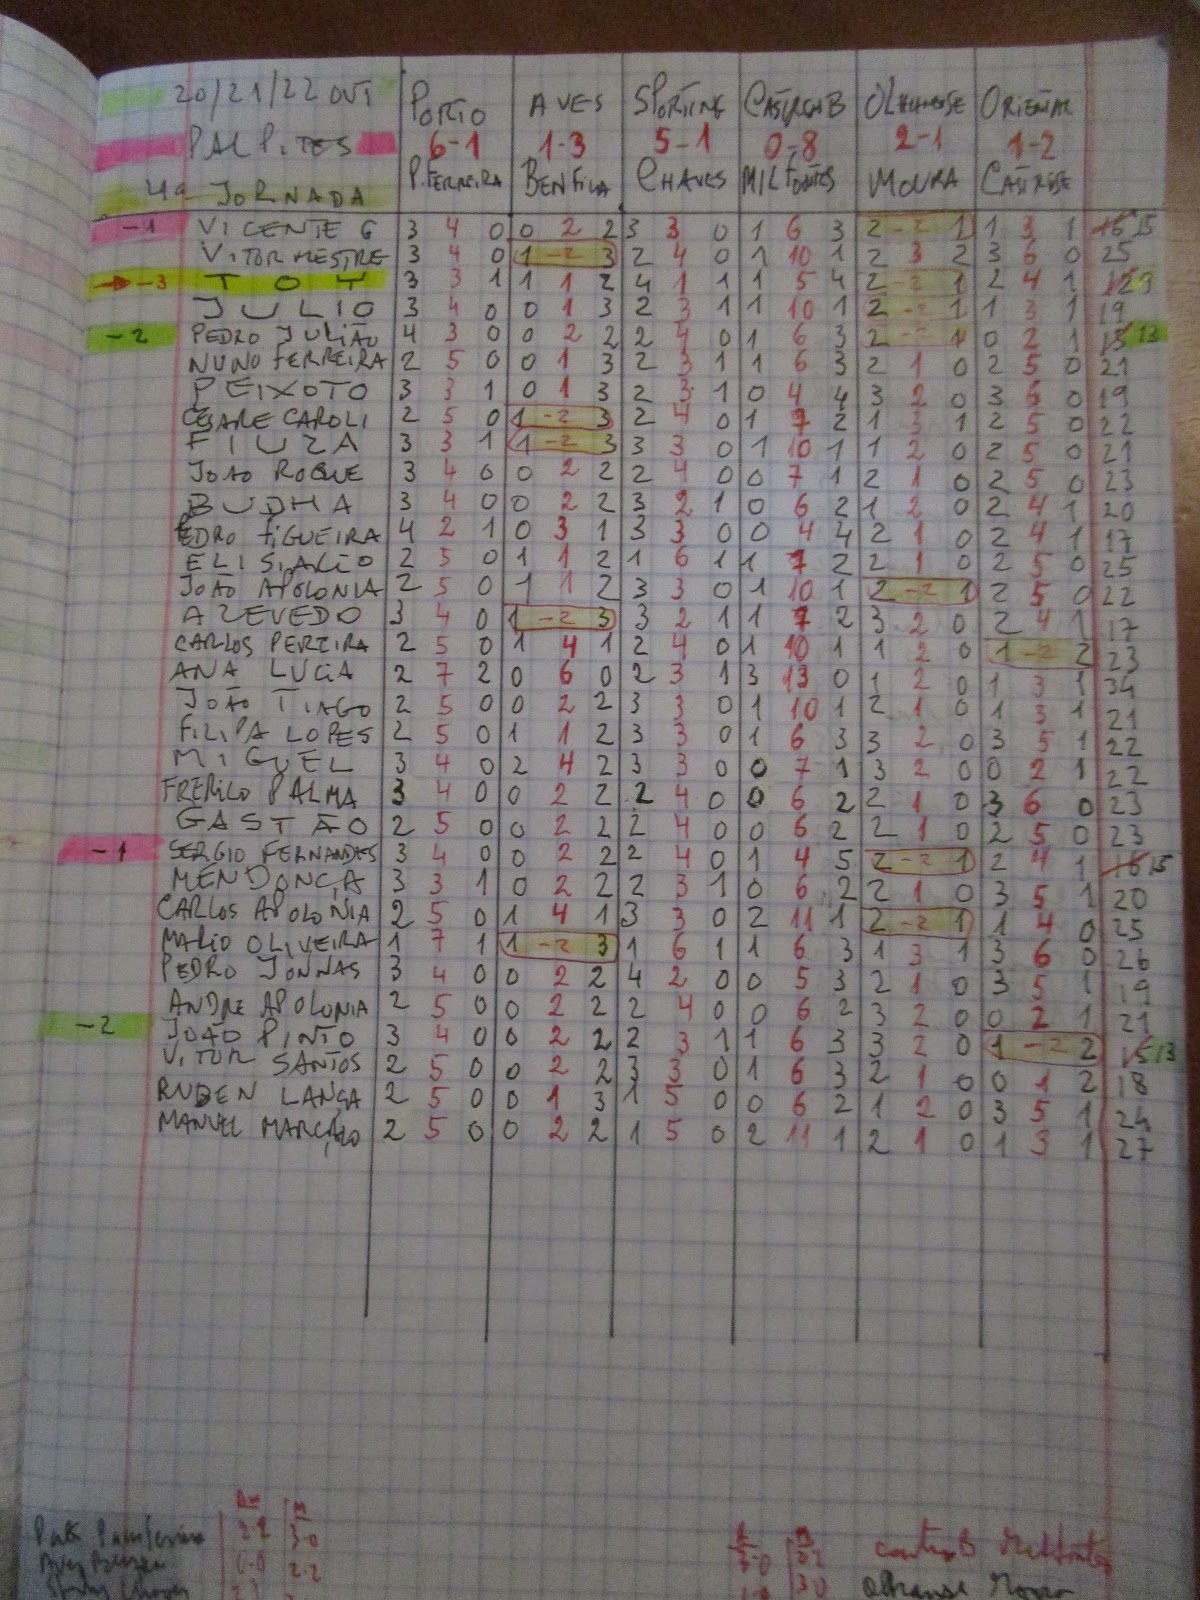 20/21/22 OUT PORTO AVES SPORTING CASTRENB OLHANENSE ORIENTAL
PALPITES 6-1 1-3 5-1 0-8 2-1 1-2
4ª JORNADA P. FERREIRA BENFICA CHAVES MILFONTES MOURA CASTRENSE
-1 VICENTE G 3 4 0 0 2 2 3 3 0 1 6 3 2 -2 1 1 3 1 16 15
VITOR MESTRE 3 4 0 1 -2 3 2 4 0 1 10 1 2 3 2 3 6 0 25
-3 TOY 3 3 1 1 1 2 4 1 1 1 5 4 2 -2 1 2 4 1
JULIO 3 4 0 0 1 3 2 3 1 1 10 1 2 -2 1 1 3 1 19
-2 PEDRO JULIÃO 4 3 0 0 2 2 2 4 0 1 6 3 2 -2 1 0 2 1 15 13
NUNO FERREIRA 2 5 0 0 1 3 2 3 1 1 6 3 2 1 0 2 5 0 21
PEIXOTO 3 3 1 0 1 3 2 3 1 0 4 4 3 2 0 3 6 0 19
CESARE CAROLI 2 5 0 1 -2 3 2 4 0 1 7 2 1 3 1 2 5 0 22
FIUZA 3 3 1 1 -2 3 3 3 0 1 10 1 1 2 0 2 5 0 21
JOÃO ROQUE 3 4 0 0 2 2 2 4 0 0 7 1 2 1 0 2 5 0 23
BUDHA 3 4 0 0 2 2 3 2 1 0 6 2 1 2 0 2 4 1 20
PEDRO FIGUEIRA 4 2 1 0 3 1 3 3 0 0 4 4 2 1 0 2 4 1 17
ELISIARIO 2 5 0 1 1 2 1 6 1 1 7 2 2 1 0 2 5 0 25
JOÃO APOLONIA 2 5 0 1 1 2 3 3 0 1 10 1 2 -2 1 2 5 0 22
AZEVEDO 3 4 0 1 -2 3 3 2 1 1 7 2 3 2 0 2 4 1 17
CARLOS PEREIRA 2 5 0 1 4 1 2 4 0 1 10 1 1 2 0 1 -2 2 23
ANA LUCIA 2 7 2 0 6 0 2 3 1 3 13 0 1 2 0 1 3 1 34
JOÃO TIAGO 2 5 0 0 2 2 3 3 0 1 10 1 2 1 0 1 3 1 21
FILIPA LOPES 2 5 0 1 1 2 3 3 0 1 6 3 3 2 0 3 5 1 22
MIGUEL 3 4 0 2 4 2 3 3 0 0 7 1 3 2 0 0 2 1 22
FRERICO PALMA 3 4 0 0 2 2 2 4 0 0 6 2 2 1 0 3 6 0 23
GASTÃO 2 5 0 0 2 2 2 4 0 0 6 2 2 1 0 2 5 0 23
-1 SERGIO FERNANDES 3 4 0 0 2 2 2 4 0 1 4 5 2 -2 1 2 4 1 16 15
MENDONÇA 3 3 1 0 2 2 2 3 1 0 6 2 2 1 0 3 5 1 20
CARLOS APOLONIA 2 5 0 1 4 1 3 3 0 2 11 1 2 -2 1 1 4 0 25
MARIO OLIVEIRA 1 7 1 1 -2 3 1 6 1 1 6 3 1 3 1 3 6 0 26
PEDRO JONNAS 3 4 0 0 2 2 4 2 0 0 5 3 2 1 0 3 5 1 19
ANDRE APOLONIA 2 5 0 0 2 2 2 4 0 0 6 2 3 2 0 0 2 1 21
-2 JOÃO PINTO 3 4 0 0 2 2 2 3 1 1 6 3 3 2 0 1 -2 2 15 13
VITOR SANTOS 2 5 0 0 2 2 3 3 0 1 6 3 2 1 0 0 1 2 18
RUBEN LANÇA 2 5 0 0 1 3 1 5 0 0 6 2 1 2 0 3 5 1 24
MANUEL MARCÃO 2 5 0 0 2 2 1 5 0 2 11 1 2 1 0 1 3 1 27
2-2 3-0
0-0 2-2 3-0 Milfontes
3-0